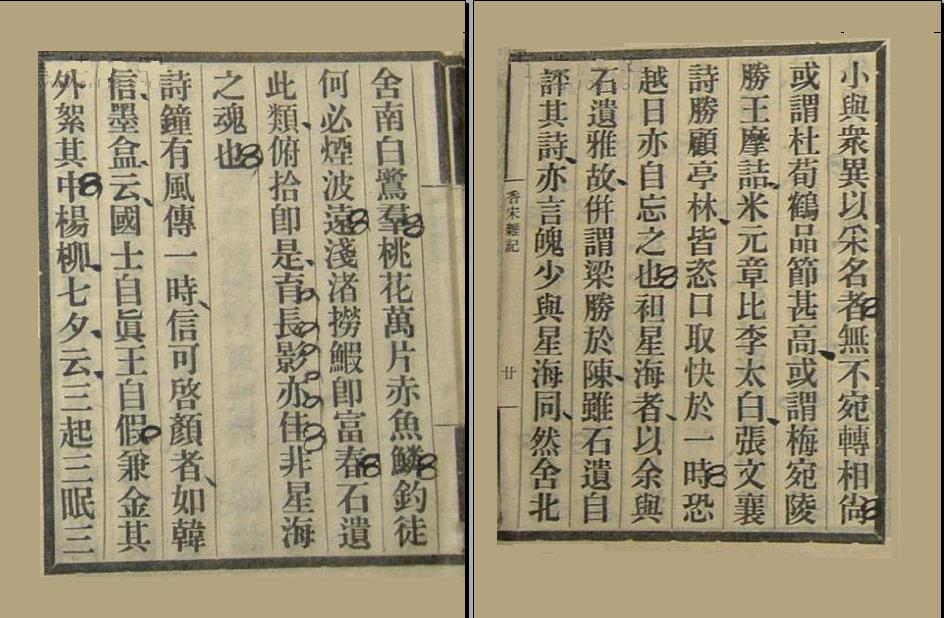 小與衆異以采名者無不宛轉相尙
或謂杜荀鶴品節甚高或謂梅宛陵
勝王摩詰米元章比李太白張文襄
詩勝顧亭林皆恣口取快於一時恐
越日亦自忘之也袒星海者以余與
石遺雅故倂謂梁勝於陳雖石遺自
評其詩亦言媿少與星海同然舍北
香宋雜記
廿
舍南白鷺羣桃花萬片赤魚鱗釣徒
何必煙波遠淺渚撈鰕卽富春石遺
此類俯拾卽是育長影亦佳非星海
之魂也
詩鐘有風傳一時信可啓顏者如韓
信墨盒云國士自眞王自假兼金其
外絮其中楊柳七夕云三起三眠三